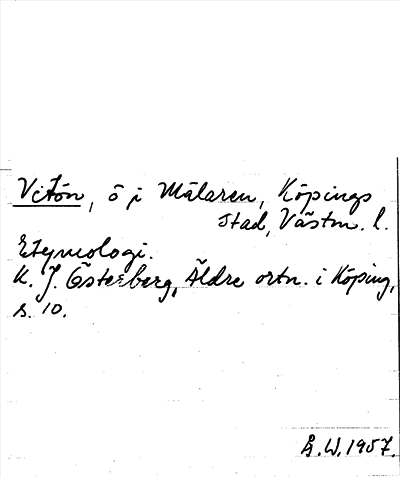 Vitön, ö i Mälaren, Köpings
stad, Västm. l.
Etymologi.
K. J. Österberg, Äldre ortn. i Köping,
s. 10.
Å.W. 1957.